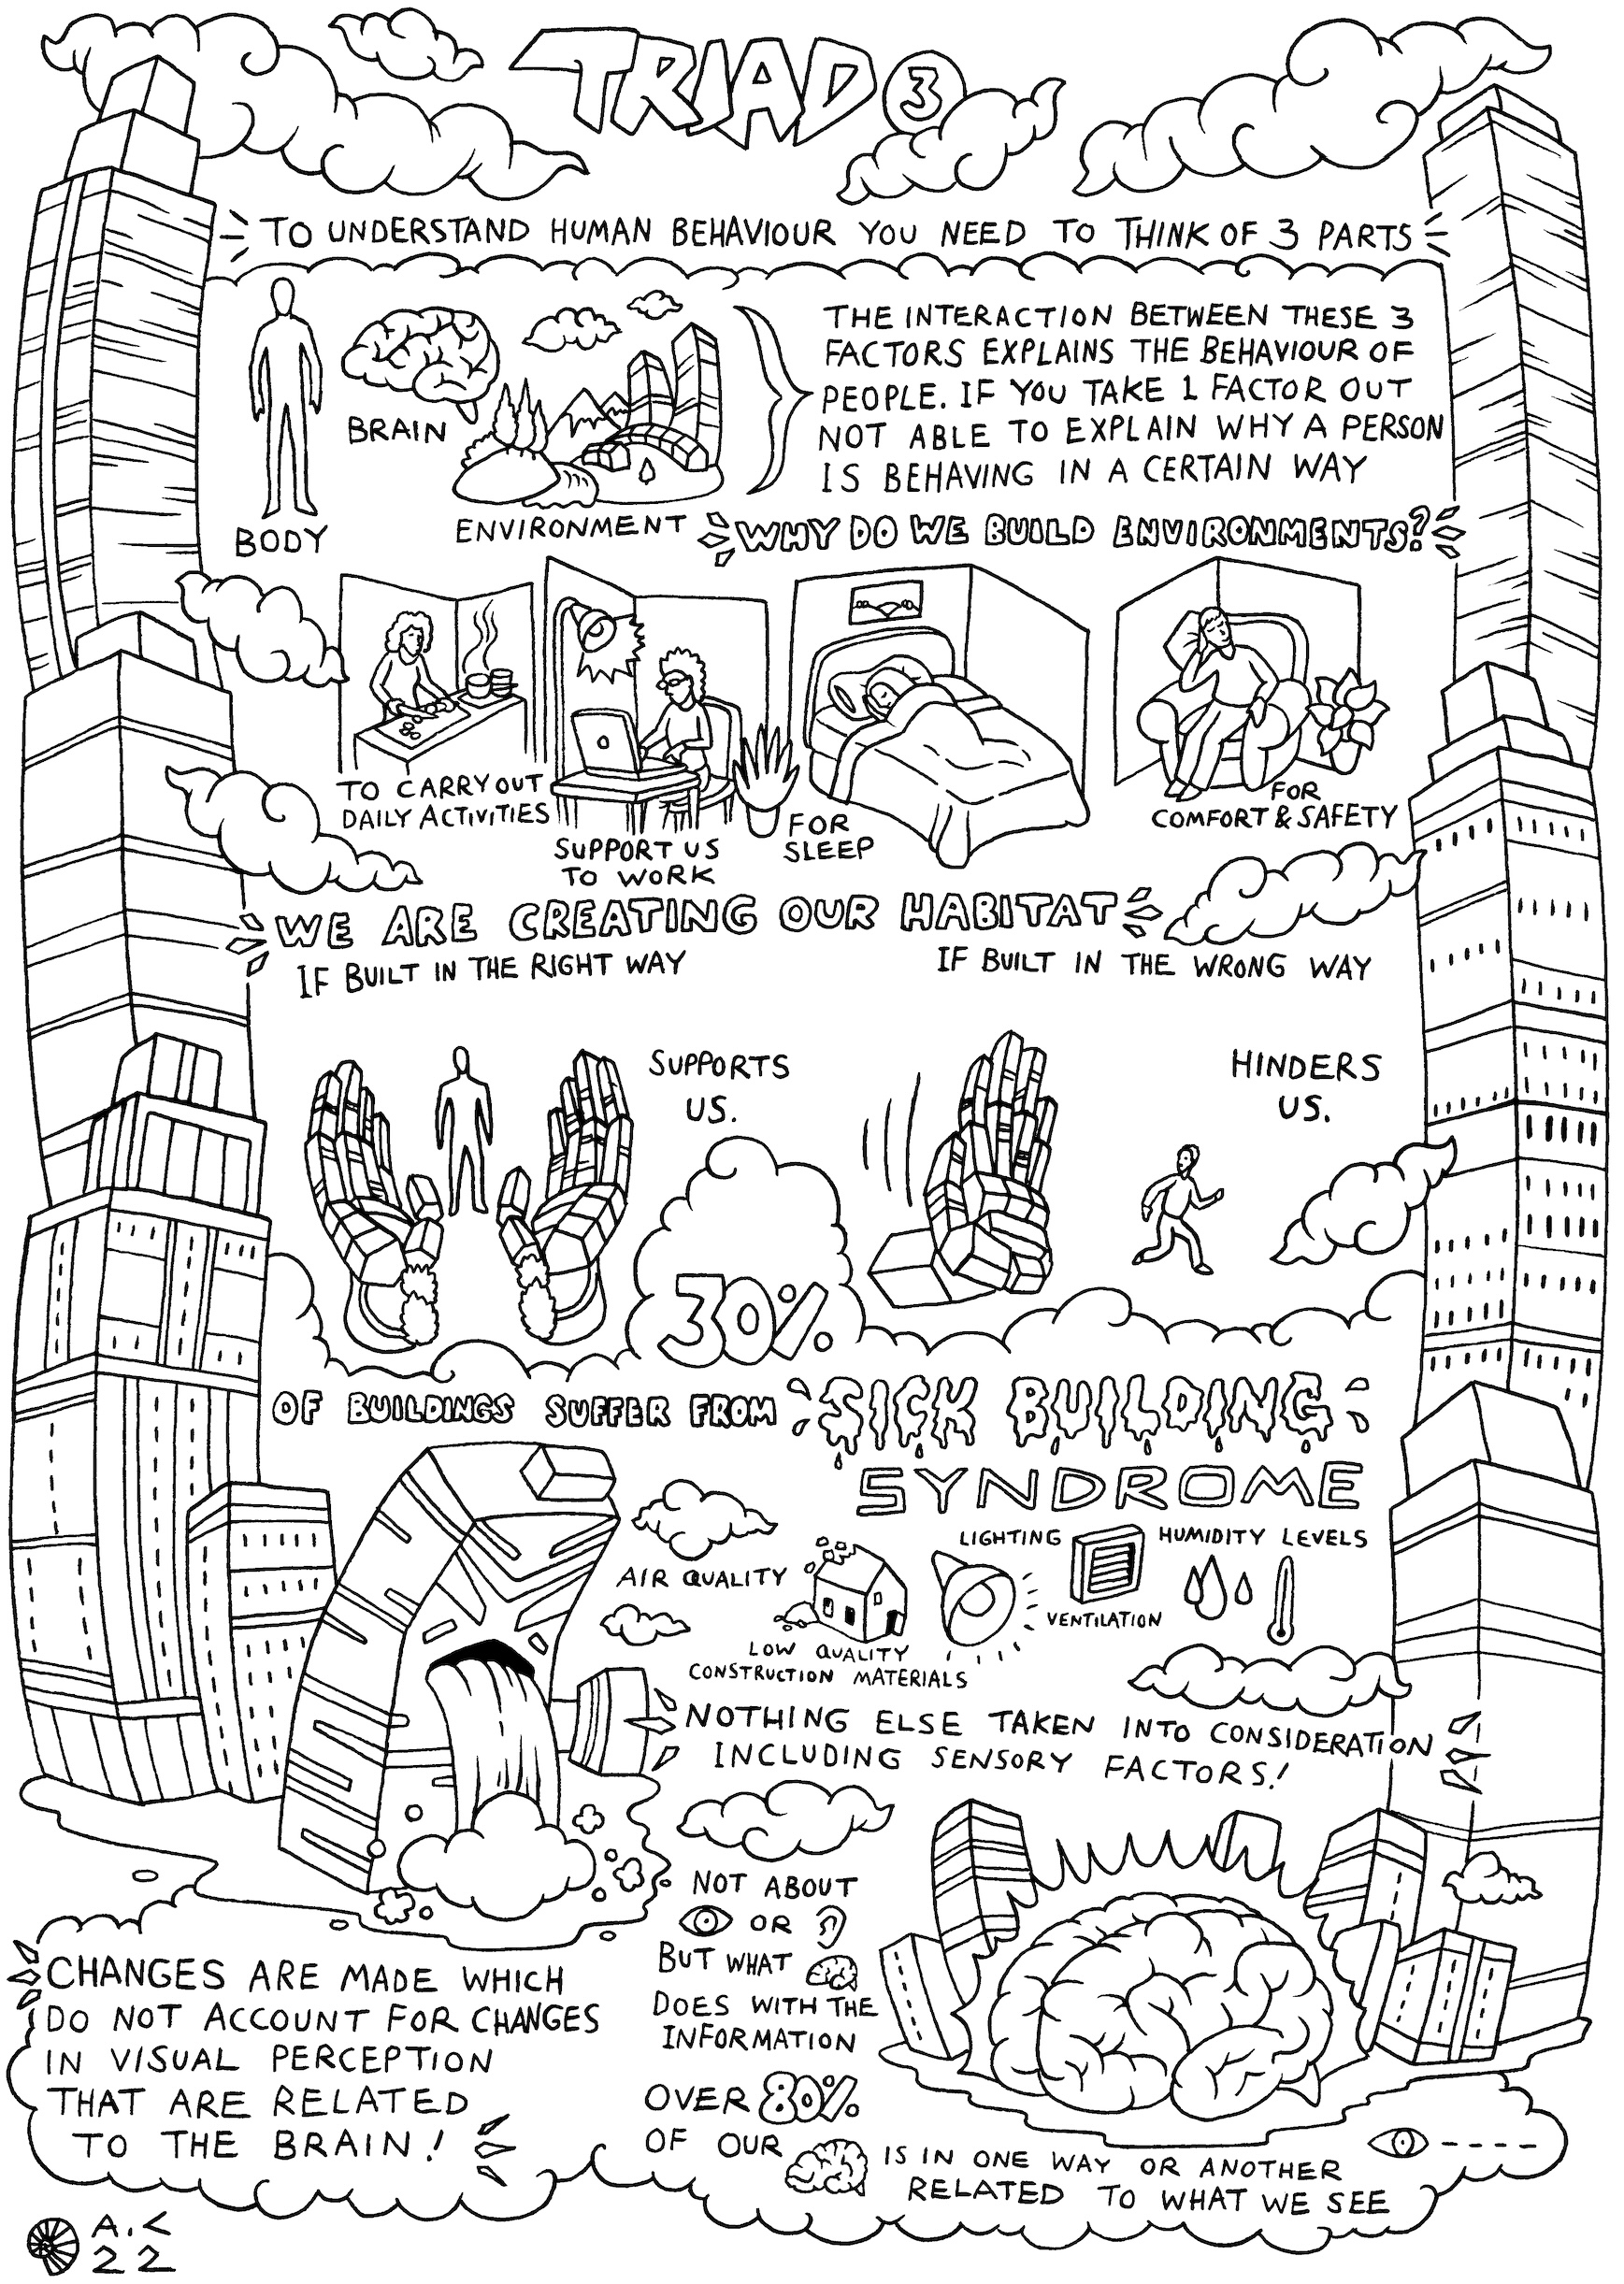 TRIAD 3
TO UNDERSTAND HUMAN BEHAVIOUR YOU NEED TO THINK OF 3 PARTS
BODY
BRAIN
ENVIRONMENT
THE INTERACTION BETWEEN THESE 3
FACTORS EXPLAINS THE BEHAVIOUR OF
PEOPLE. IF YOU TAKE 1 FACTOR OUT
NOT ABLE TO EXPLAIN WHY A PERSON
IS BEHAVING IN A CERTAIN WAY
WHY DO WE BUILD ENVIRONMENTS?
TO CARRY OUT
DAILY ACTIVITIES
SUPPORT US
TO WORK
FOR
SLEEP
FOR
COMFORT & SAFETY
WE ARE CREATING OUR HABITAT
IF BUILT IN THE RIGHT WAY
IF BUILT IN THE WRONG WAY
SUPPORTS
US.
HINDERS
US.
30%
OF BUILDINGS SUFFER FROM SICK BUILDING
SYNDROME
AIR QUALITY
LOW QUALITY
CONSTRUCTION MATERIALS
LIGHTING
VENTILATION
HUMIDITY LEVELS
NOTHING ELSE TAKEN INTO CONSIDERATION
INCLUDING SENSORY FACTORS!
NOT ABOUT
OR
BUT WHAT
DOES WITH THE
INFORMATION
CHANGES ARE MADE WHICH
DO NOT ACCOUNT FOR CHANGES
IN VISUAL PERCEPTION
THAT ARE RELATED
TO THE BRAIN!
OVER 80%
OF OUR
IS IN ONE WAY OR ANOTHER
RELATED TO WHAT WE SEE
A.<
22